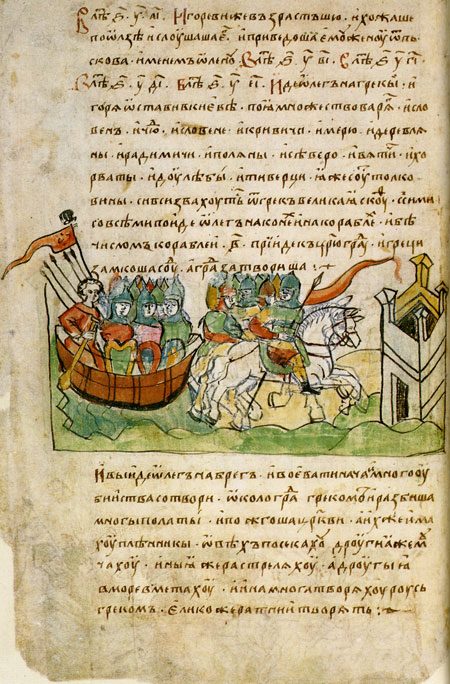 Влѣ ҂ѕ҃ у аі҃ · Игоревижевъзрастъшю · ихожаше
поѡлзѣ ислоушашаег҃ · иприведошаемоуженоуѿпь
скова · именемъѡленоу · Влѣ ҂ѕ҃ у ві҃ · Влѣ ҂ѕ҃ у гі҃ ·
Влѣ ҂ѕ҃ у ді҃ · Влѣ ҂ѕ҃ у еі҃ · Идеѡлегънагрекы · и
горѧѡставивкиевѣ · поꙗмножествоварѧ · исло
венъ · ичю · исловене · икривичи · имерю · идеревлѧ
ны · ирадимичи · иполѧны · исѣверо · ивѧти · ихо
рваты · идоулѣбы · итиверци · ꙗжесоутолко
вины · сивсизвахоут ѿгрекъвеликаꙗскоу · ссими
совсѣмипоидеѡлегънаконеинакораблѣ · ибѣ
числомъкораблеи · в҃ · приидекцрюграу · игреци
замкошасоу · агразатвориша :
Ивыидеѡлегънабрегъ · ивоеватинача · имногооу
биистваотвори · ѿкологра греком · иразбиша
многыполаты · ипожгошацркви · аихжеима
хоуплѣнникы · ѡвѣхъпосекахо · дроугиажем
чахоу · иныꙗжерастрелѧхоу · адроугыꙗ
вморевметахоу · иинамногатворѧхоуроусь
грекомъ · еликожератниитворѧть :